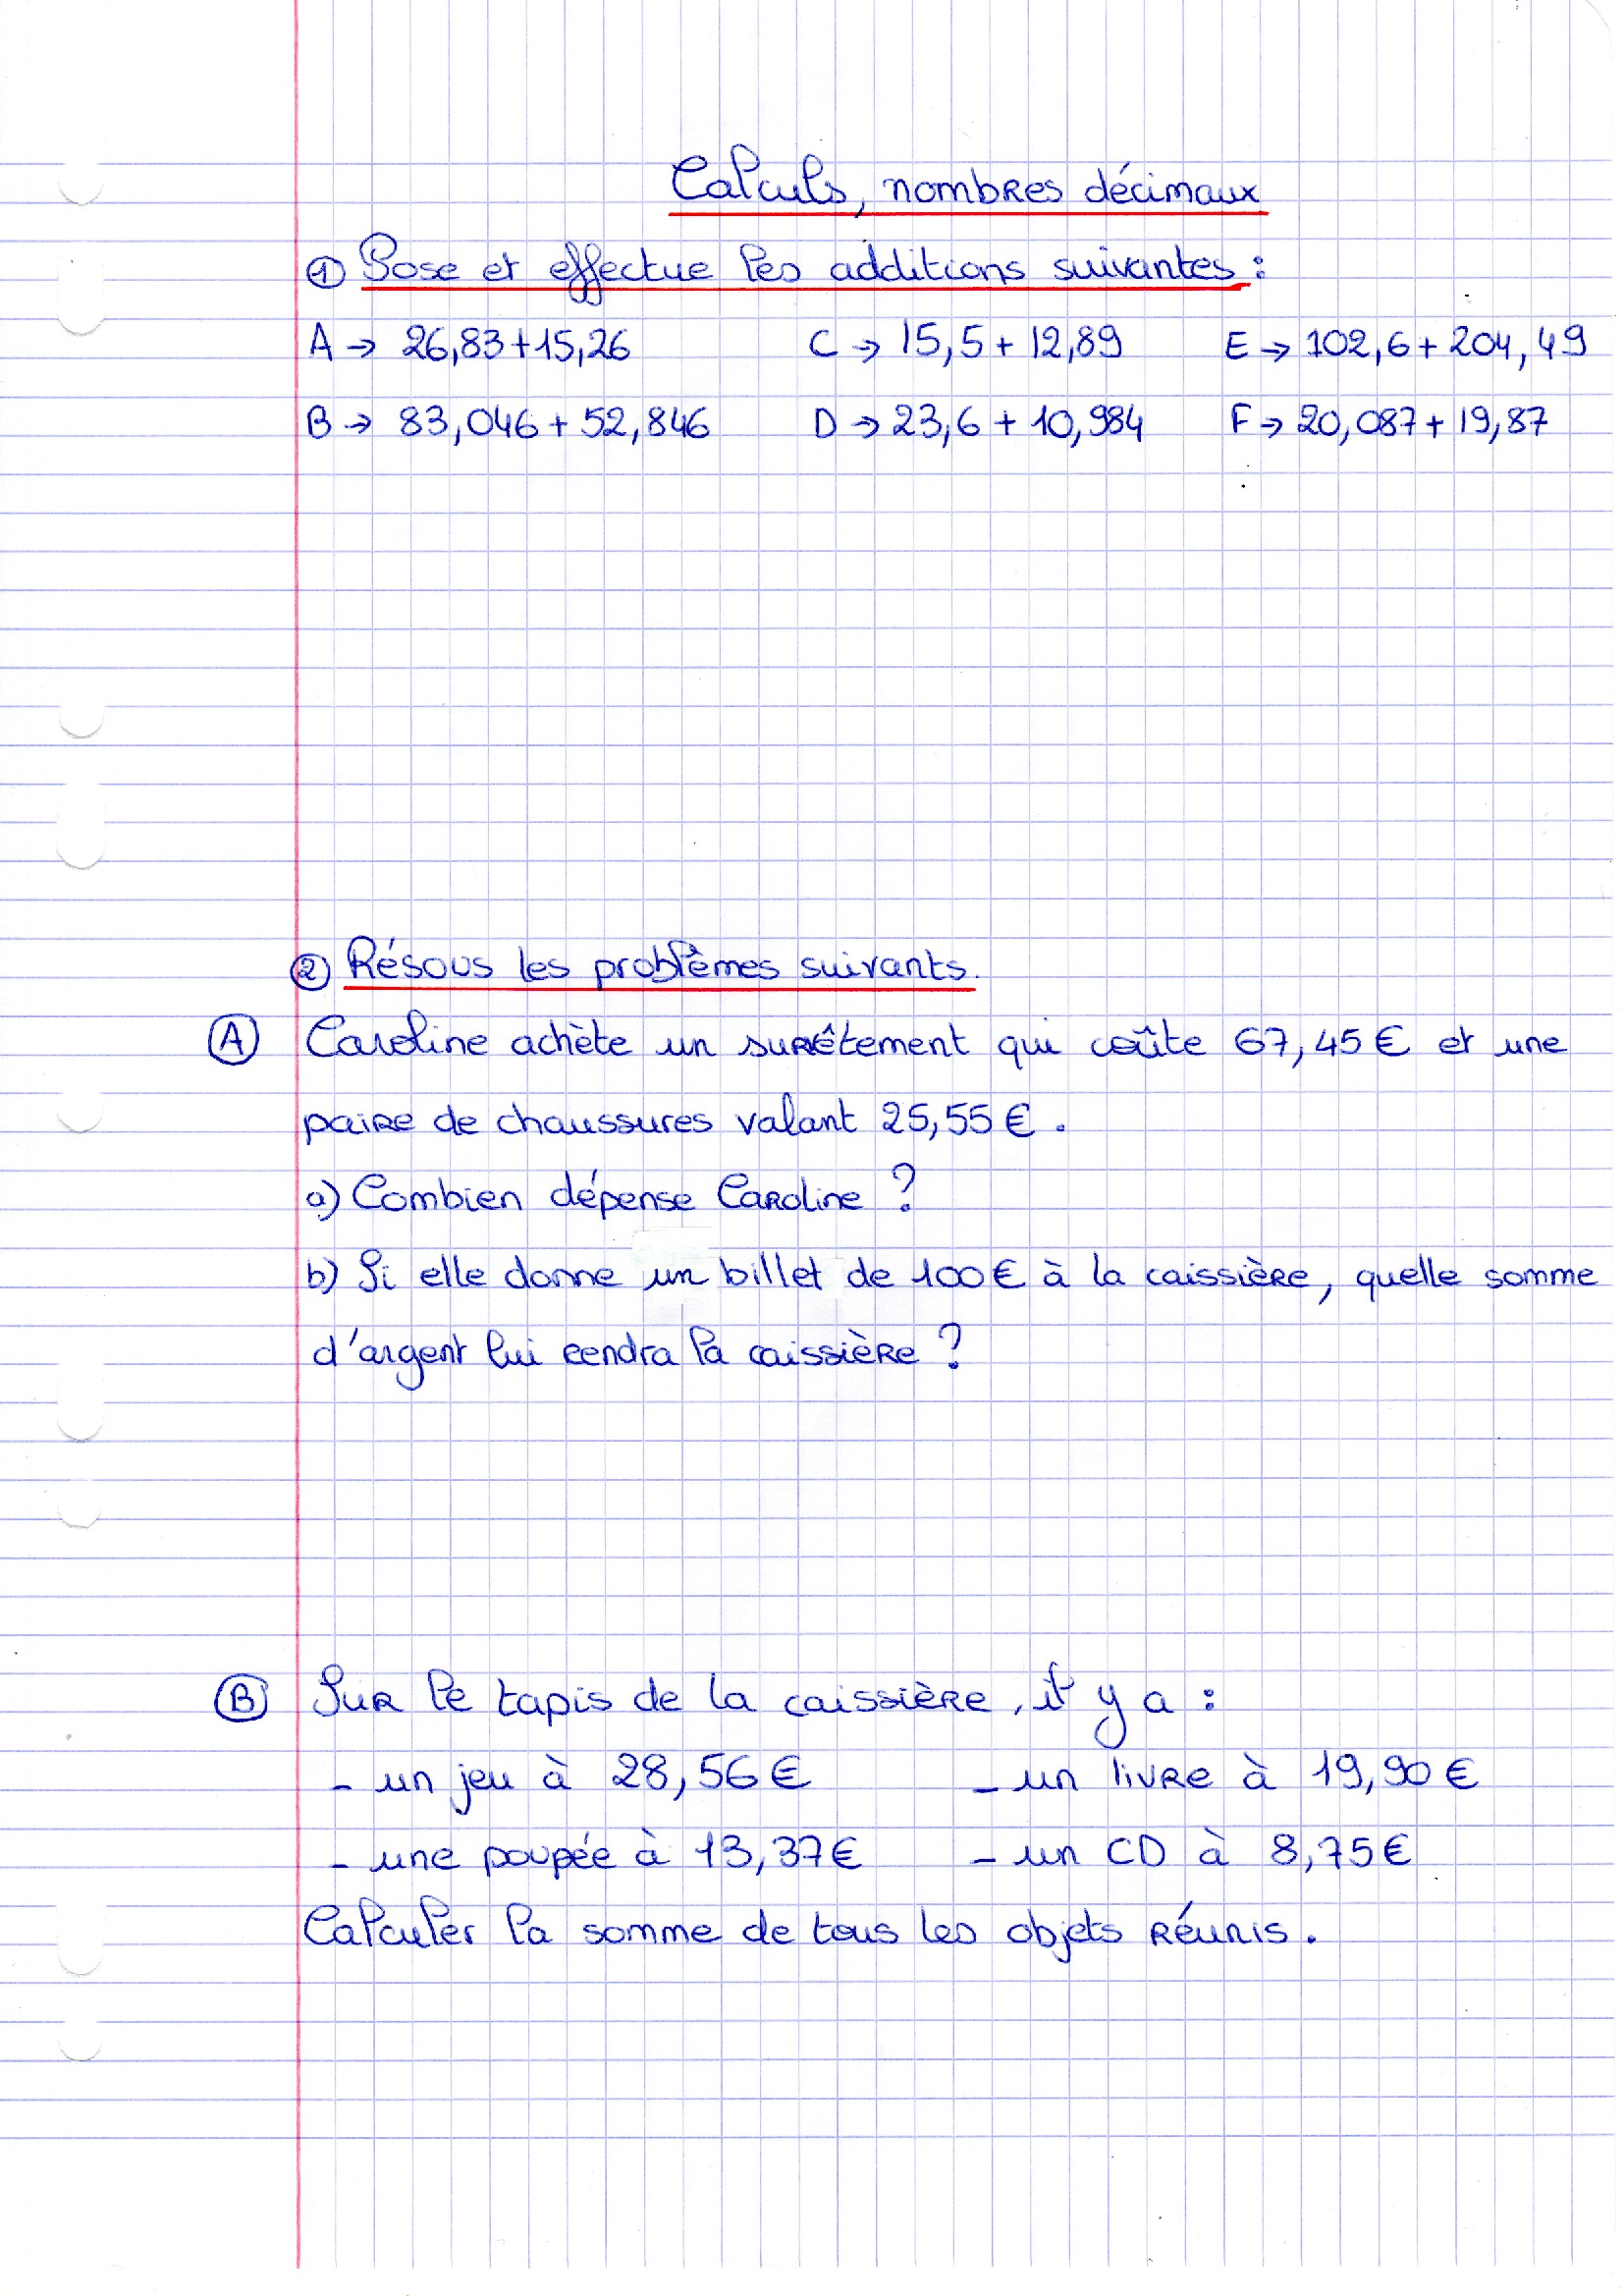 Calculs, nombres décimaux
① Pose et effectue les additions suivantes :
A → 26,83+15,26 C → 15,5 + 12,89 E → 102,6 + 204,49
B → 83,046 + 52,846 D → 23,6 + 10,984 F → 20,087 + 19,87
② Résous les problèmes suivants.
Ⓐ Caroline achète un survêtement qui coûte 67,45 € et une
paire de chaussures valant 25,55 €.
a) Combien dépense Caroline ?
b) Si elle donne un billet de 100 € à la caissière, quelle somme
d'argent lui rendra la caissière ?
Ⓑ Sur le tapis de la caissière, il y a :
- un jeu à 28,56 € - un livre à 19,90 €
- une poupée à 13,37 € - un CD à 8,75 €
Calculer la somme de tous les objets réunis.